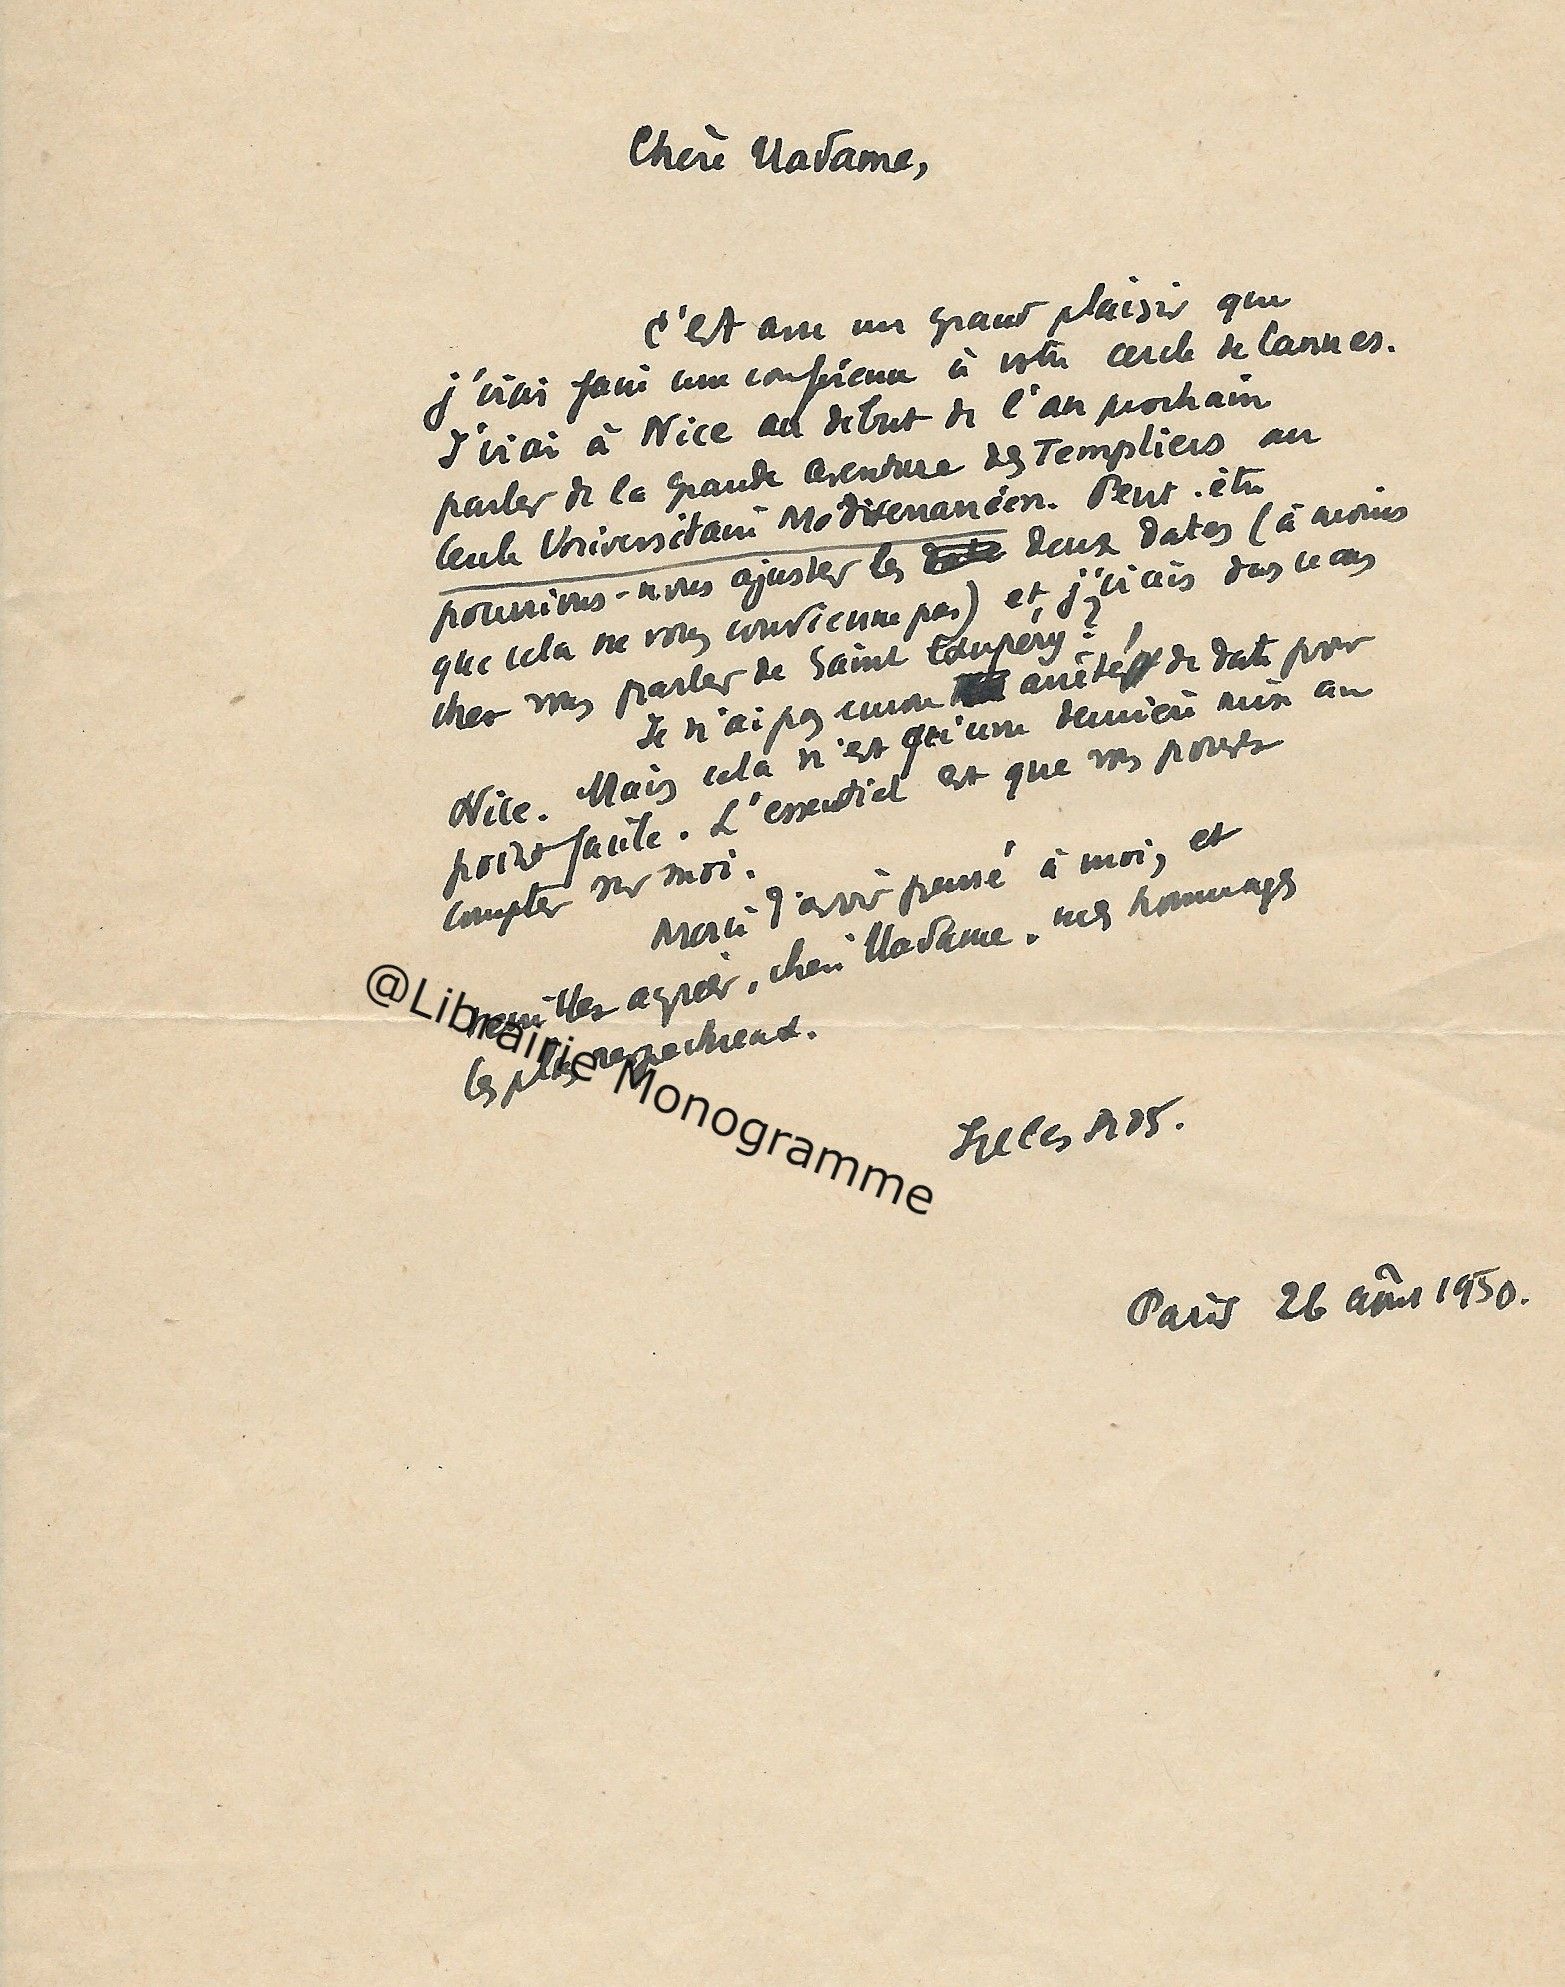 Chère Madame,
C'est avec un grand plaisir que
j'irai faire une conférence à votre cercle de Cannes.
J'irai à Nice au début de l'an prochain
parler de la grande aventure des Templiers au
Centre Universitaire Méditerranéen. Peut-être
pourrions-nous ajuster les deux dates (à moins
que cela ne vous convienne pas) et j'irais dans ce cas
chez vous parler de Saint Exupéry ?
Je n'ai pas encore arrêté de date pour
Nice. Mais cela n'est qu'une dernière mise au
point facile. L'essentiel est que vous pouvez
compter sur moi.
Merci d'avoir pensé à moi, et
veuillez agréer, chère Madame, mes hommages
les plus respectueux.
@Librairie Monogramme
Paris 26 août 1950.